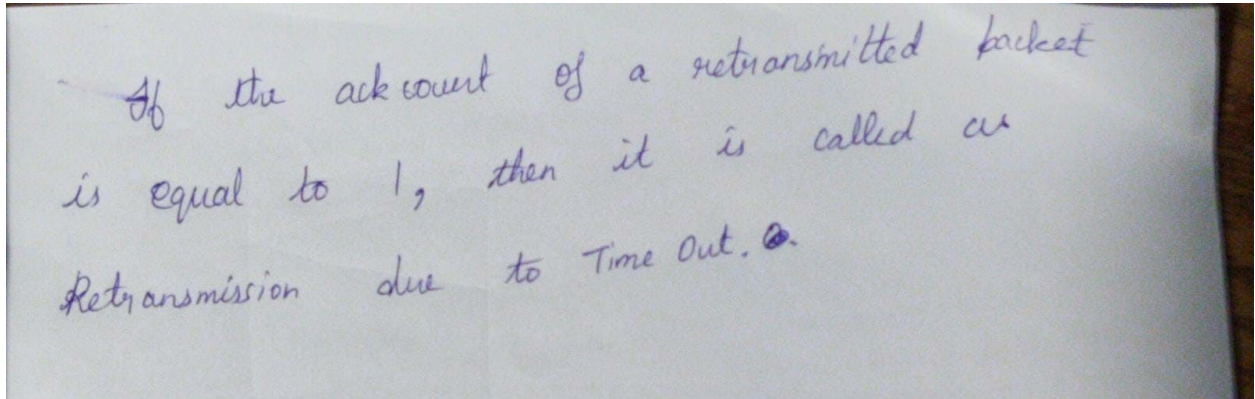 If the ack count of a retransmitted packet
is equal to 1, then it is called as
Retransmission due to Time Out.